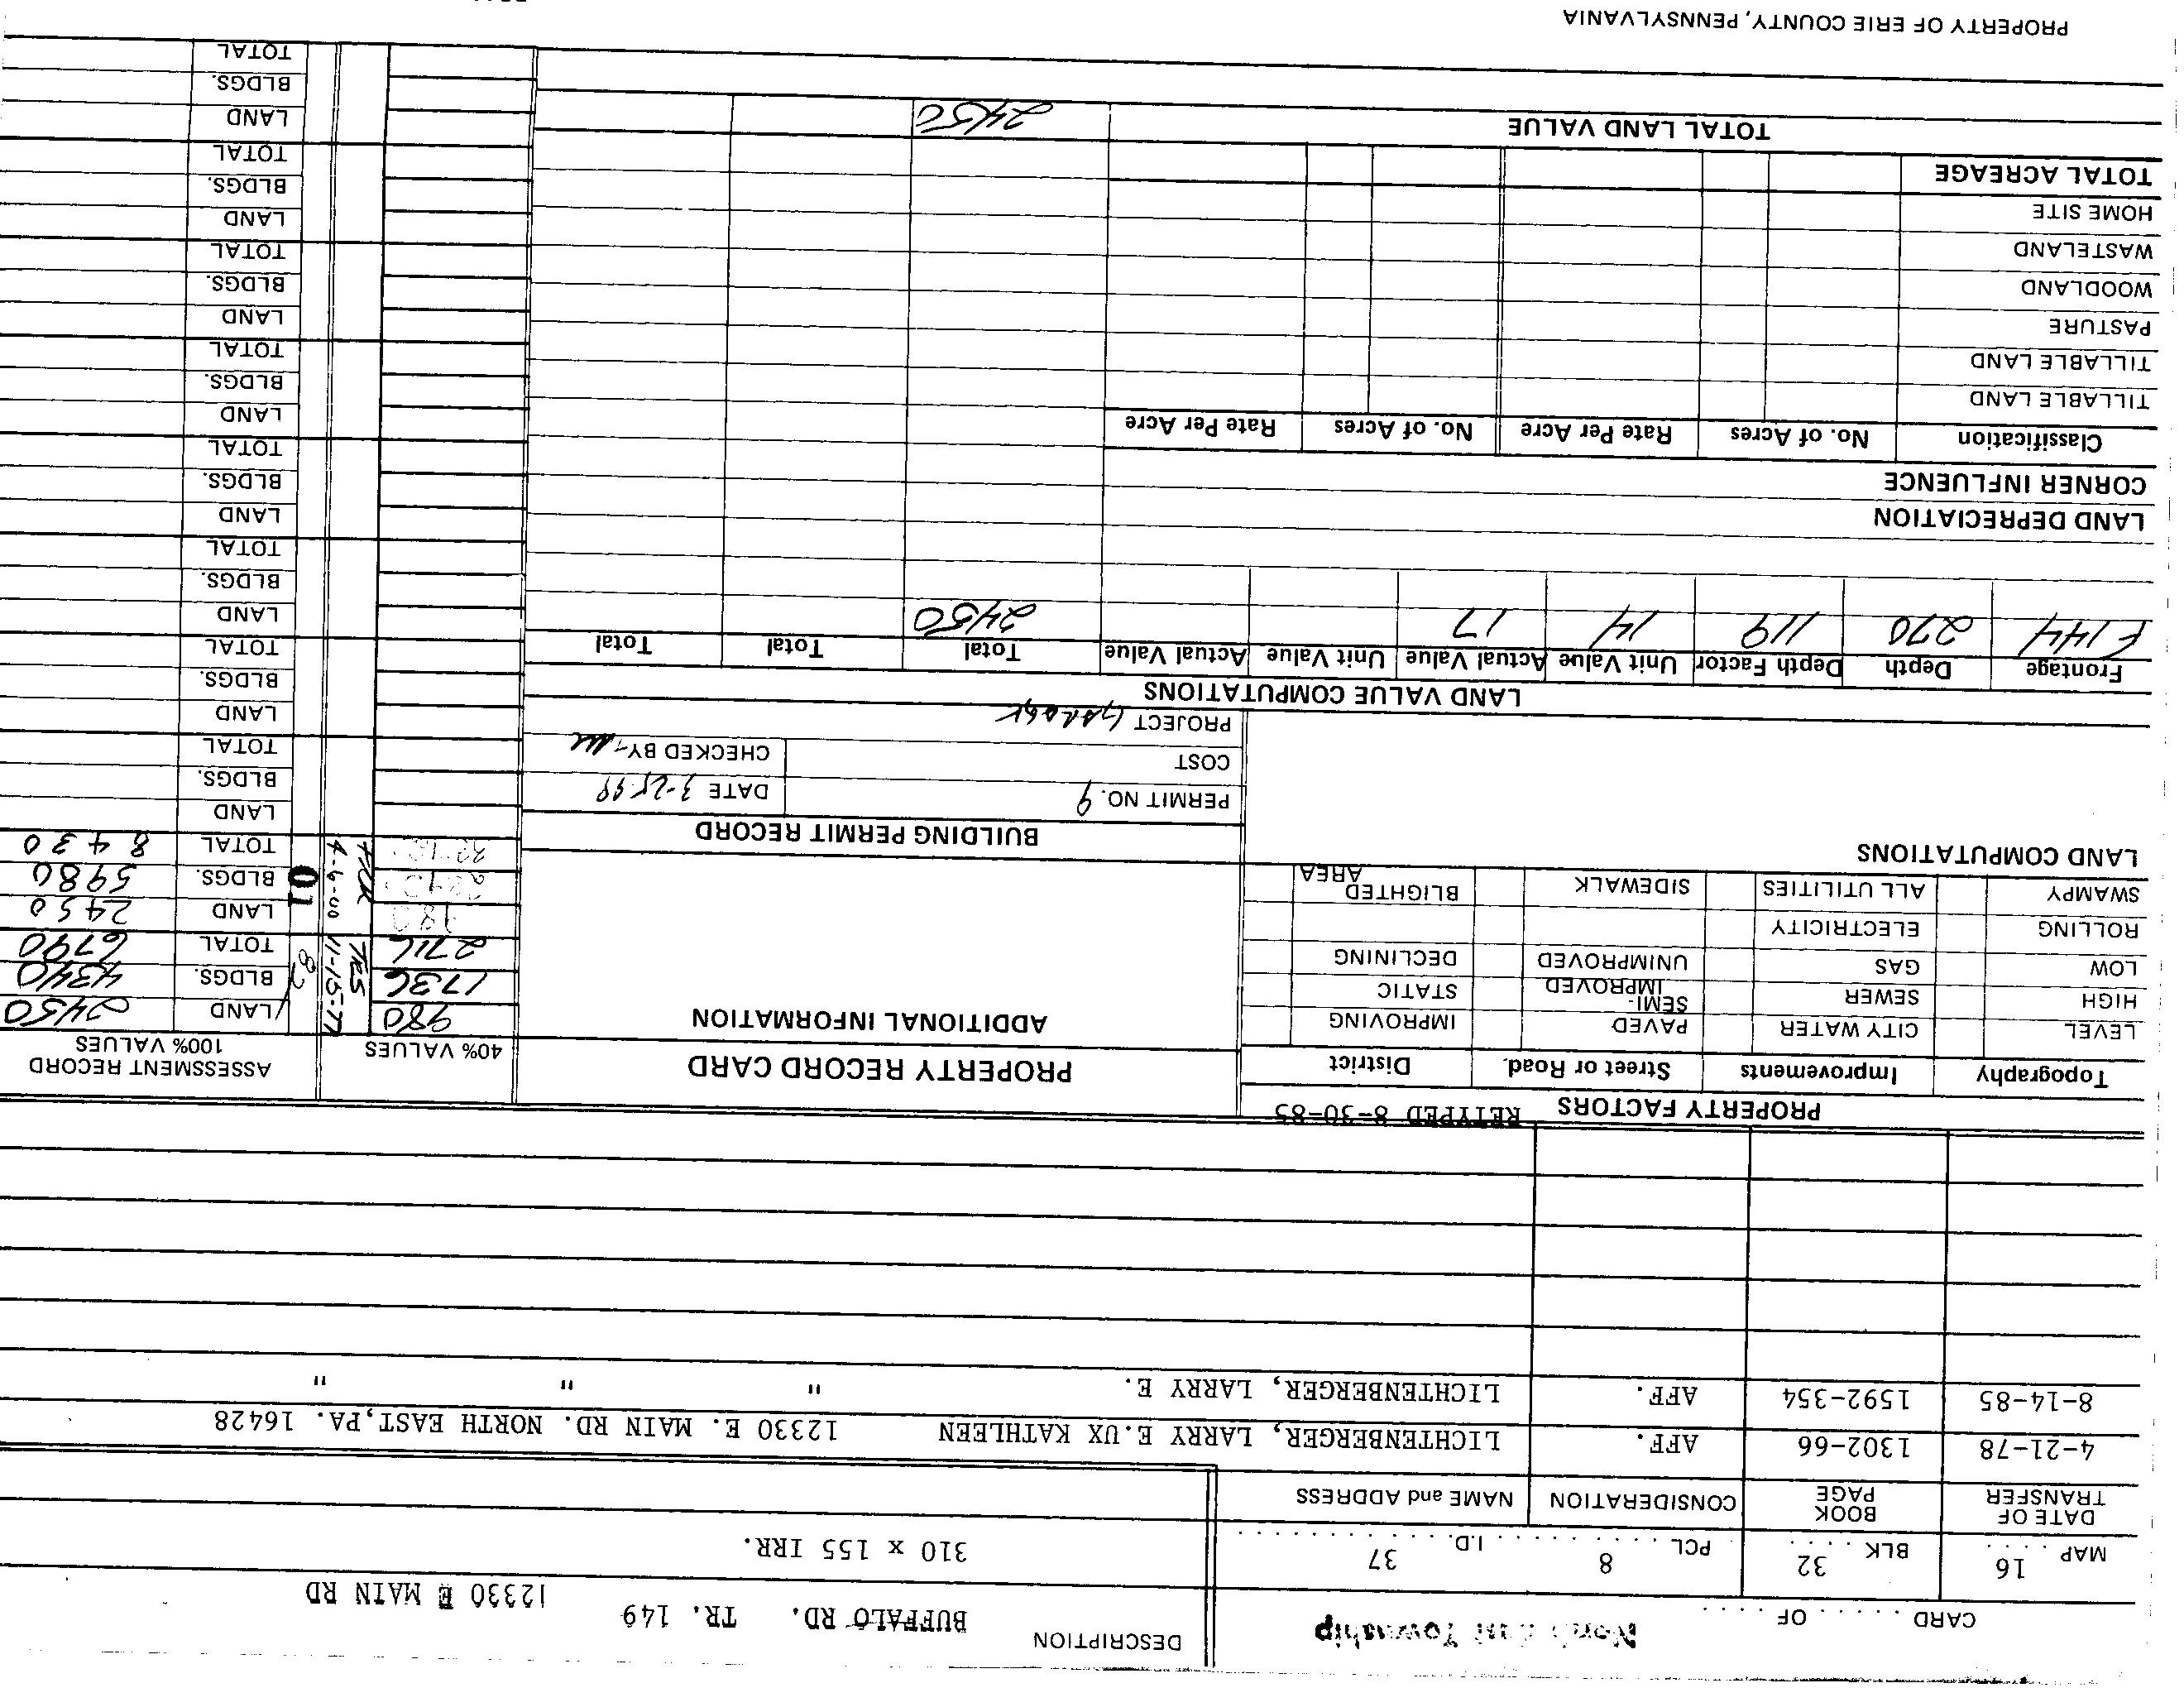 CARD ..... OF ....
North East Township
DESCRIPTION BUFFALO RD. TR. 149 12330 E MAIN RD
MAP 16 BLK 32 PCL 8 I.D. 37
310 x 155 IRR.
DATE OF TRANSFER BOOK PAGE CONSIDERATION NAME and ADDRESS
4-21-78 1302-66 AFF. LICHTENBERGER, LARRY E.UX KATHLEEN 12330 E. MAIN RD. NORTH EAST,PA. 16428
8-14-85 1592-354 AFF. LICHTENBERGER, LARRY E. " " "
PROPERTY FACTORS RETYPED 8-30-85
Topography Improvements Street or Road. District
LEVEL CITY WATER PAVED IMPROVING
HIGH SEWER SEMI-IMPROVED STATIC
LOW GAS UNIMPROVED DECLINING
ROLLING ELECTRICITY
SWAMPY ALL UTILITIES SIDEWALK BLIGHTED AREA
LAND COMPUTATIONS
PROPERTY RECORD CARD
ADDITIONAL INFORMATION
BUILDING PERMIT RECORD
PERMIT NO. 9 DATE 3-25-99
COST CHECKED BY
PROJECT Garage
40% VALUES
ASSESSMENT RECORD
100% VALUES
980 TRS 11-15-77 82 LAND 2450
1736 BLDGS. 4340
2716 TOTAL 6790
4-6-00 01 LAND 2450
BLDGS. 5980
TOTAL 8430
LAND
BLDGS.
TOTAL
LAND
BLDGS.
TOTAL
LAND
BLDGS.
TOTAL
LAND
BLDGS.
TOTAL
LAND
BLDGS.
TOTAL
LAND
BLDGS.
TOTAL
LAND
BLDGS.
TOTAL
LAND
BLDGS.
TOTAL
LAND VALUE COMPUTATIONS
Frontage Depth Depth Factor Unit Value Actual Value Unit Value Actual Value Total Total Total
F144 270 119 14 17 2450
LAND DEPRECIATION
CORNER INFLUENCE
Classification No. of Acres Rate Per Acre No. of Acres Rate Per Acre
TILLABLE LAND
TILLABLE LAND
PASTURE
WOODLAND
WASTELAND
HOME SITE
TOTAL ACREAGE
TOTAL LAND VALUE 2450
PROPERTY OF ERIE COUNTY, PENNSYLVANIA